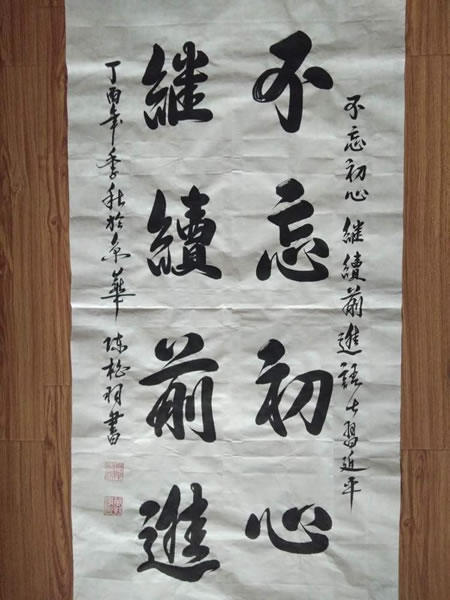 不忘初心 継續前進語出習近平
不忘初心
継續前進
丁酉年季秋於京華 陈松羽書